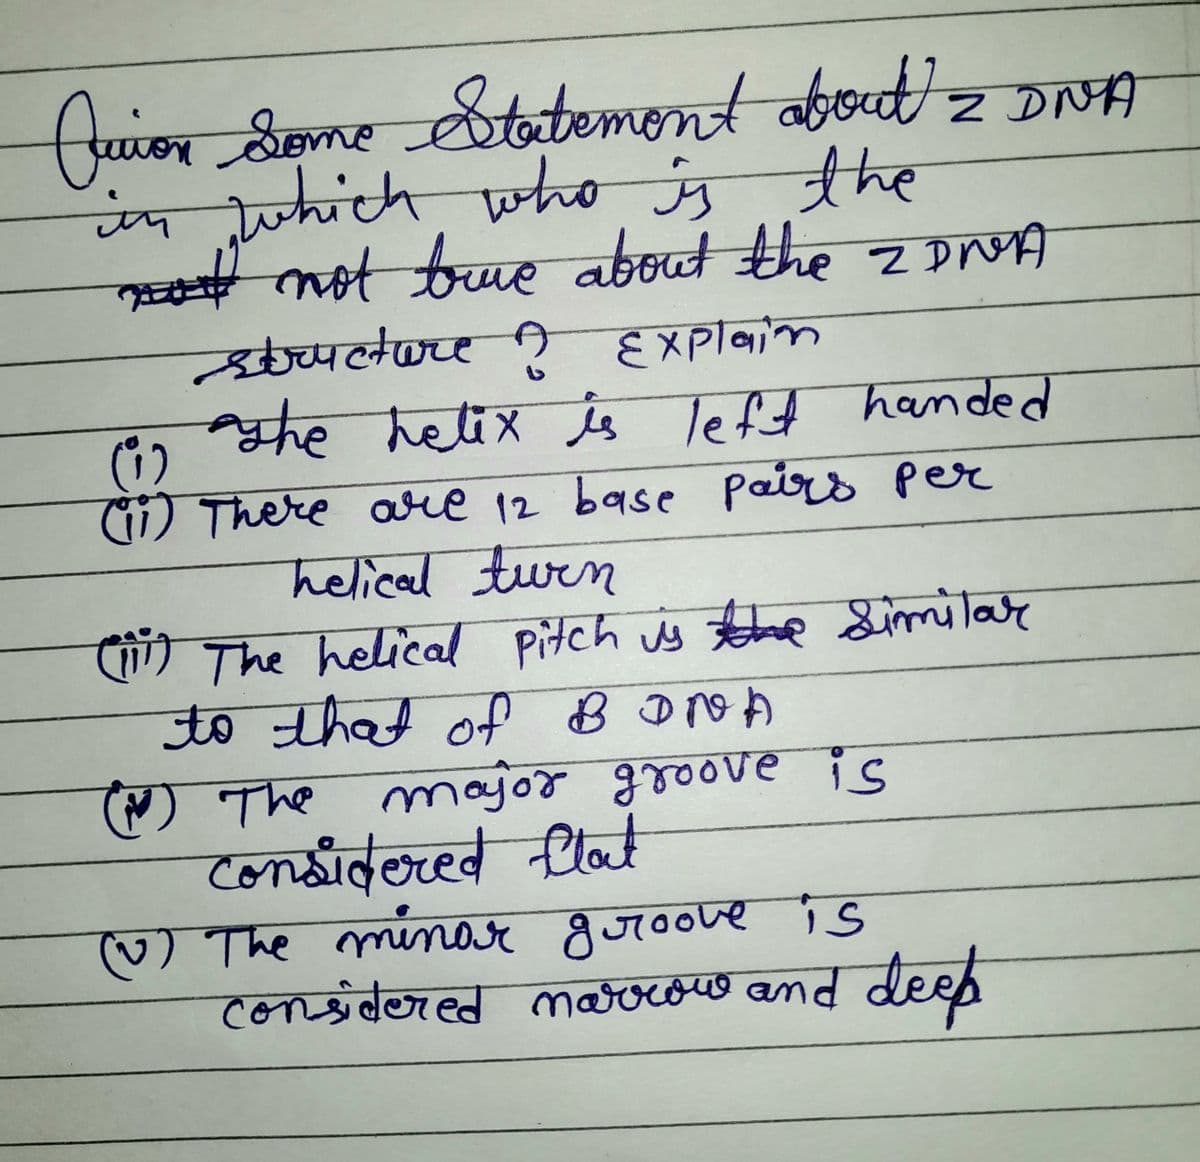 Given Some Statement about Z DNA
in which who is the
not not true about the Z DNA
structure ? Explain
(i) The helix is left handed
(ii) There are 12 base pairs per
helical turn
(iii) The helical pitch is the similar
to that of B DNA
(iv) The major groove is
considered flat
(v) The minor groove is
considered narrow and deep